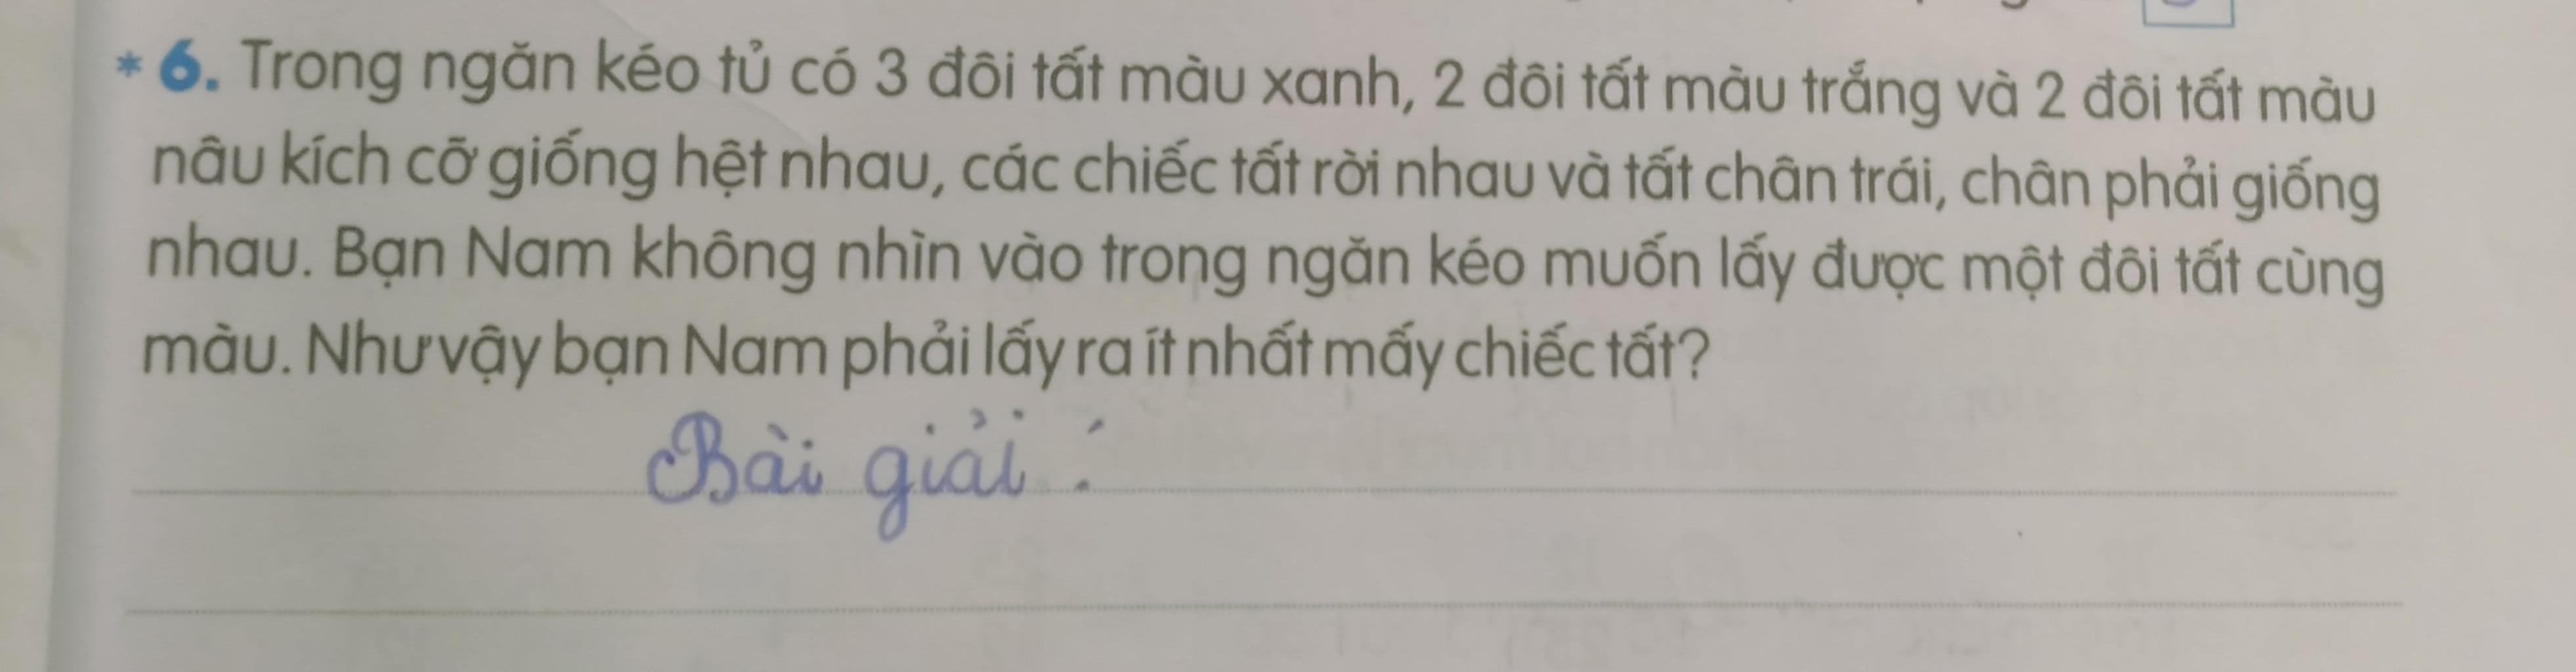 * 6. Trong ngăn kéo tủ có 3 đôi tất màu xanh, 2 đôi tất màu trắng và 2 đôi tất màu
nâu kích cỡ giống hệt nhau, các chiếc tất rời nhau và tất chân trái, chân phải giống
nhau. Bạn Nam không nhìn vào trong ngăn kéo muốn lấy được một đôi tất cùng
màu. Như vậy bạn Nam phải lấy ra ít nhất mấy chiếc tất?
Bài giải :